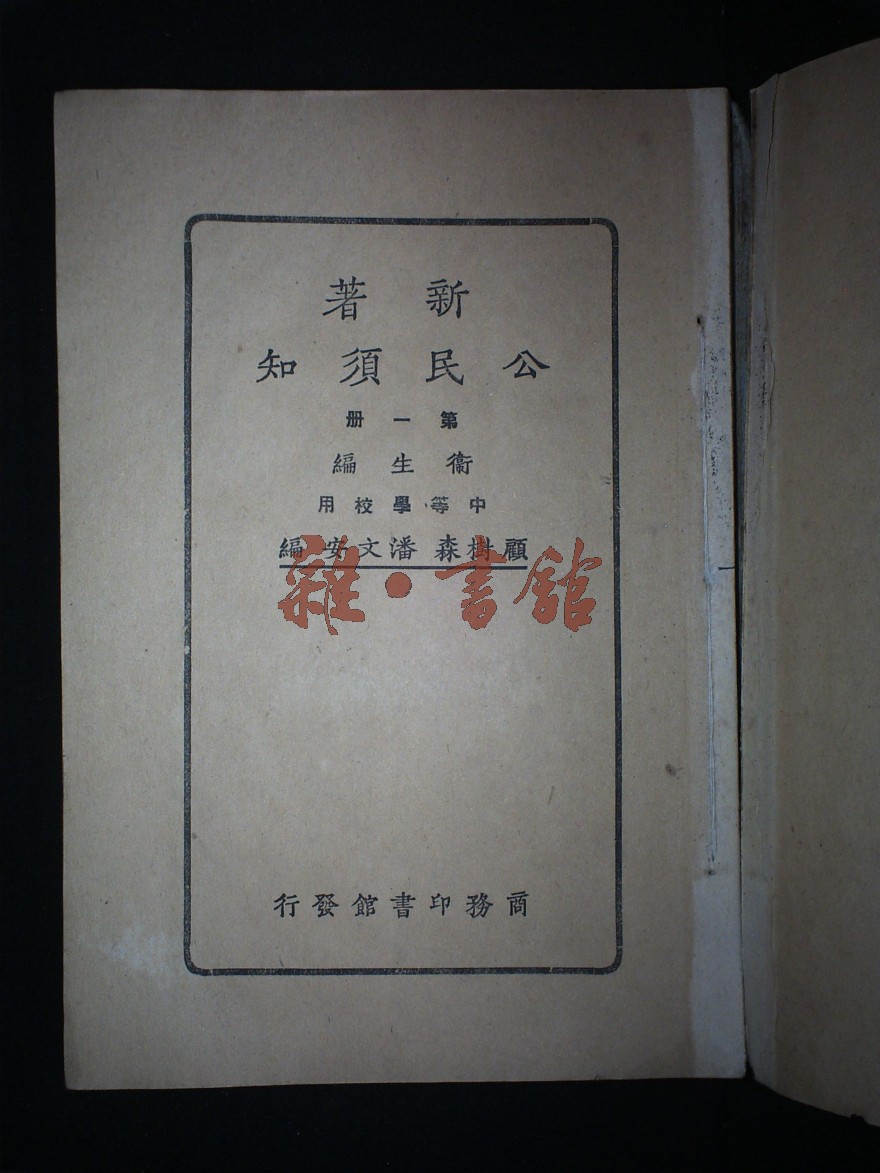 新著
公民須知
第一册
衞生編
中等學校用
顧樹森 潘文安 編
雜·書館
商務印書館發行